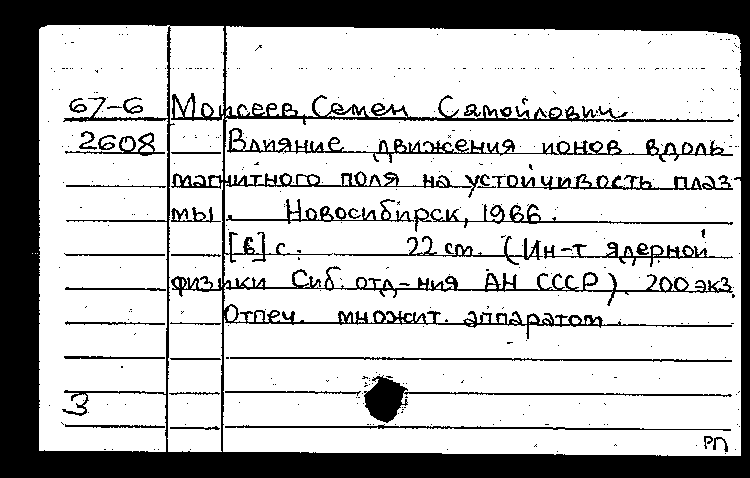 67-6 Моисеев, Семен Самойлович.
2608 Влияние движения ионов вдоль
магнитного поля на устойчивость плаз-
мы. Новосибирск, 1966.
[6] с. 22 см. (Ин-т ядерной
физики Сиб. отд-ния АН СССР). 200 экз.
Отпеч. множит. аппаратом.
3
РП